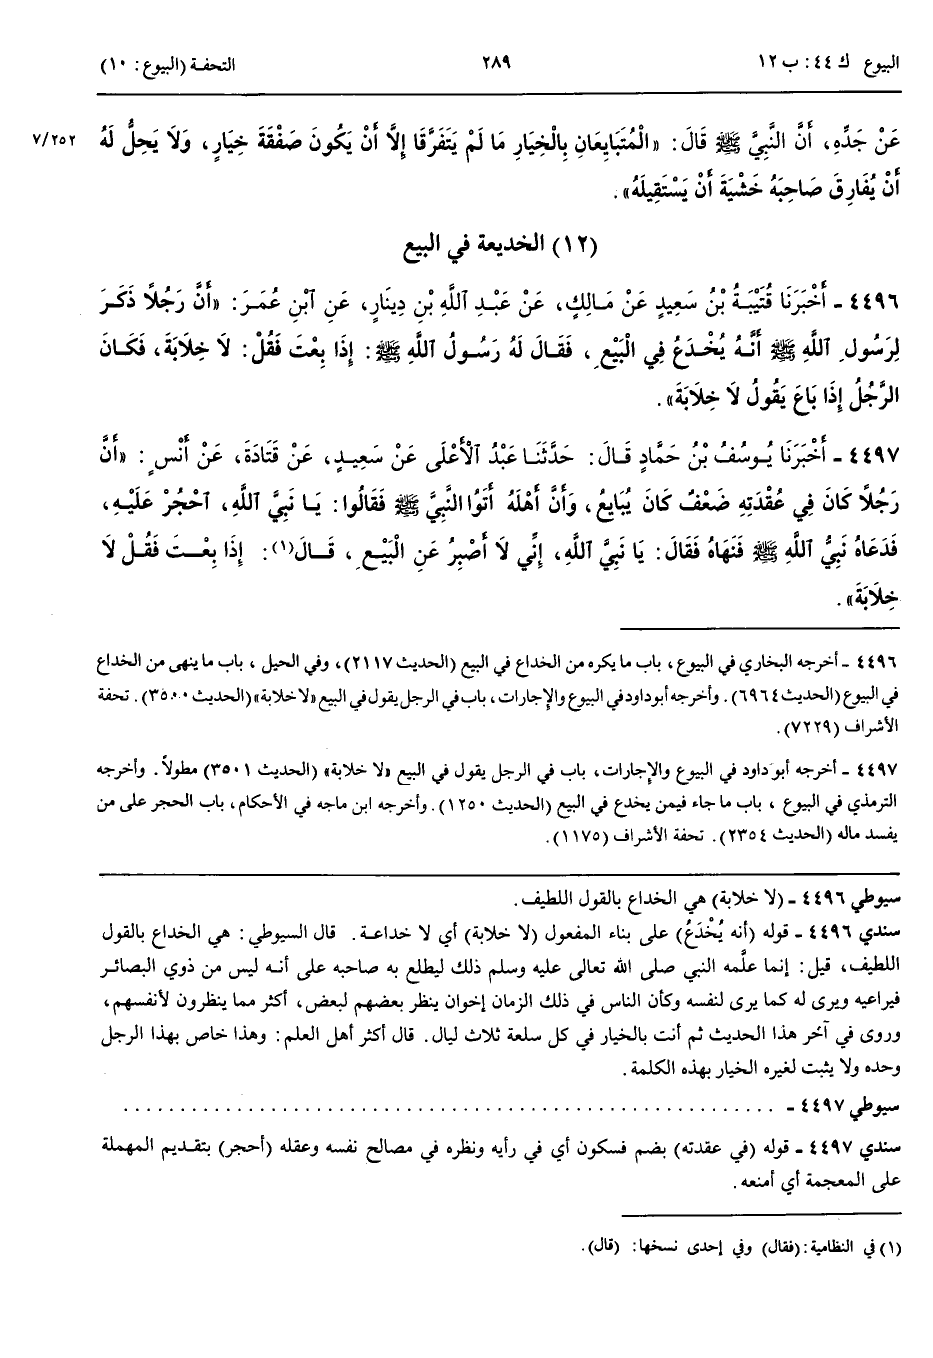 البيوع ك ٤٤: ب ١٢ ٢٨٩ التحفة (البيوع: ١٠)
عَنْ جَدِّهِ، أَنَّ النَّبِيَّ ﷺ قَالَ: «الْمُتَبَايِعَانِ بِالْخِيَارِ مَا لَمْ يَتَفَرَّقَا إِلَّا أَنْ يَكُونَ صَفْقَةَ خِيَارٍ، وَلَا يَحِلُّ لَهُ ٧/٢٥٢
أَنْ يُفَارِقَ صَاحِبَهُ خَشْيَةَ أَنْ يَسْتَقِيلَهُ».
(١٢) الخديعة في البيع
٤٤٩٦ - أَخْبَرَنَا قُتَيْبَةُ بْنُ سَعِيدٍ عَنْ مَالِكٍ، عَنْ عَبْدِ اللَّهِ بْنِ دِينَارٍ، عَنِ ابْنِ عُمَرَ: «أَنَّ رَجُلًا ذَكَرَ
لِرَسُولِ اللَّهِ ﷺ أَنَّهُ يُخْدَعُ فِي الْبَيْعِ، فَقَالَ لَهُ رَسُولُ اللَّهِ ﷺ: إِذَا بِعْتَ فَقُلْ: لَا خِلَابَةَ، فَكَانَ
الرَّجُلُ إِذَا بَاعَ يَقُولُ لَا خِلَابَةَ».
٤٤٩٧ - أَخْبَرَنَا يُوسُفُ بْنُ حَمَّادٍ قَالَ: حَدَّثَنَا عَبْدُ الْأَعْلَى عَنْ سَعِيدٍ، عَنْ قَتَادَةَ، عَنْ أَنَسٍ: «أَنَّ
رَجُلًا كَانَ فِي عُقْدَتِهِ ضَعْفٌ كَانَ يُبَايِعُ، وَأَنَّ أَهْلَهُ أَتَوُا النَّبِيَّ ﷺ فَقَالُوا: يَا نَبِيَّ اللَّهِ، احْجُرْ عَلَيْهِ،
فَدَعَاهُ نَبِيُّ اللَّهِ ﷺ فَنَهَاهُ فَقَالَ: يَا نَبِيَّ اللَّهِ، إِنِّي لَا أَصْبِرُ عَنِ الْبَيْعِ، قَالَ(١): إِذَا بِعْتَ فَقُلْ لَا
خِلَابَةَ».
٤٤٩٦ - أخرجه البخاري في البيوع، باب ما يكره من الخداع في البيع (الحديث ٢١١٧)، وفي الحيل، باب ما ينهى من الخداع
في البيوع (الحديث ٦٩٦٤). وأخرجه أبو داود في البيوع والإجارات، باب في الرجل يقول في البيع «لا خلابة» (الحديث ٣٥٠٠). تحفة
الأشراف (٧٢٢٩).
٤٤٩٧ - أخرجه أبو داود في البيوع والإجارات، باب في الرجل يقول في البيع «لا خلابة» (الحديث ٣٥٠١) مطولاً. وأخرجه
الترمذي في البيوع، باب ما جاء فيمن يخدع في البيع (الحديث ١٢٥٠). وأخرجه ابن ماجه في الأحكام، باب الحجر على من
يفسد ماله (الحديث ٢٣٥٤). تحفة الأشراف (١١٧٥).
سيوطي ٤٤٩٦ - (لا خلابة) هي الخداع بالقول اللطيف.
سندي ٤٤٩٦ - قوله (أنه يُخْدَعُ) على بناء المفعول (لا خلابة) أي لا خداعة. قال السيوطي: هي الخداع بالقول
اللطيف، قيل: إنما علَّمه النبي صلى الله تعالى عليه وسلم ذلك ليطلع به صاحبه على أنه ليس من ذوي البصائر
فيراعيه ويرى له كما يرى لنفسه وكأن الناس في ذلك الزمان إخوان ينظر بعضهم لبعض، أكثر مما ينظرون لأنفسهم،
وروى في آخر هذا الحديث ثم أنت بالخيار في كل سلعة ثلاث ليال. قال أكثر أهل العلم: وهذا خاص بهذا الرجل
وحده ولا يثبت لغيره الخيار بهذه الكلمة.
سيوطي ٤٤٩٧ - ............................................................
سندي ٤٤٩٧ - قوله (في عقدته) بضم فسكون أي في رأيه ونظره في مصالح نفسه وعقله (أحجر) بتقديم المهملة
على المعجمة أي أمنعه.
(١) في النظامية: (فقال) وفي إحدى نسخها: (قال).